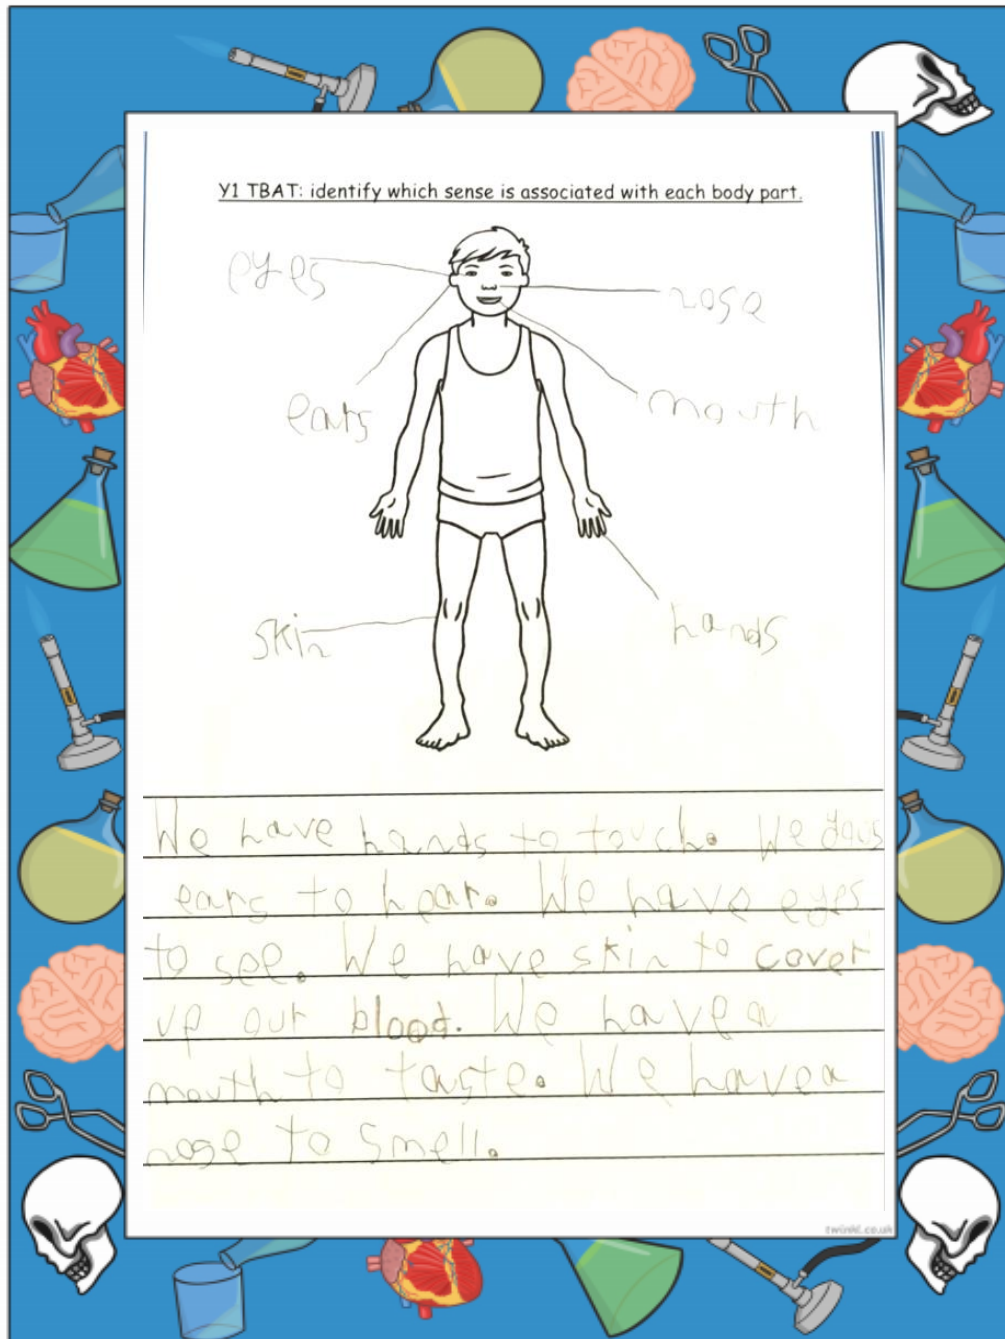 Y1 TBAT: identify which sense is associated with each body part.
eyes
nose
ears
mouth
skin
hands
We have hands to touch. We
ears to hear. We have eyes
to see. We have skin to cover
up our blood. We have a
mouth to taste. We have a
nose to smell.
twinkl.co.uk